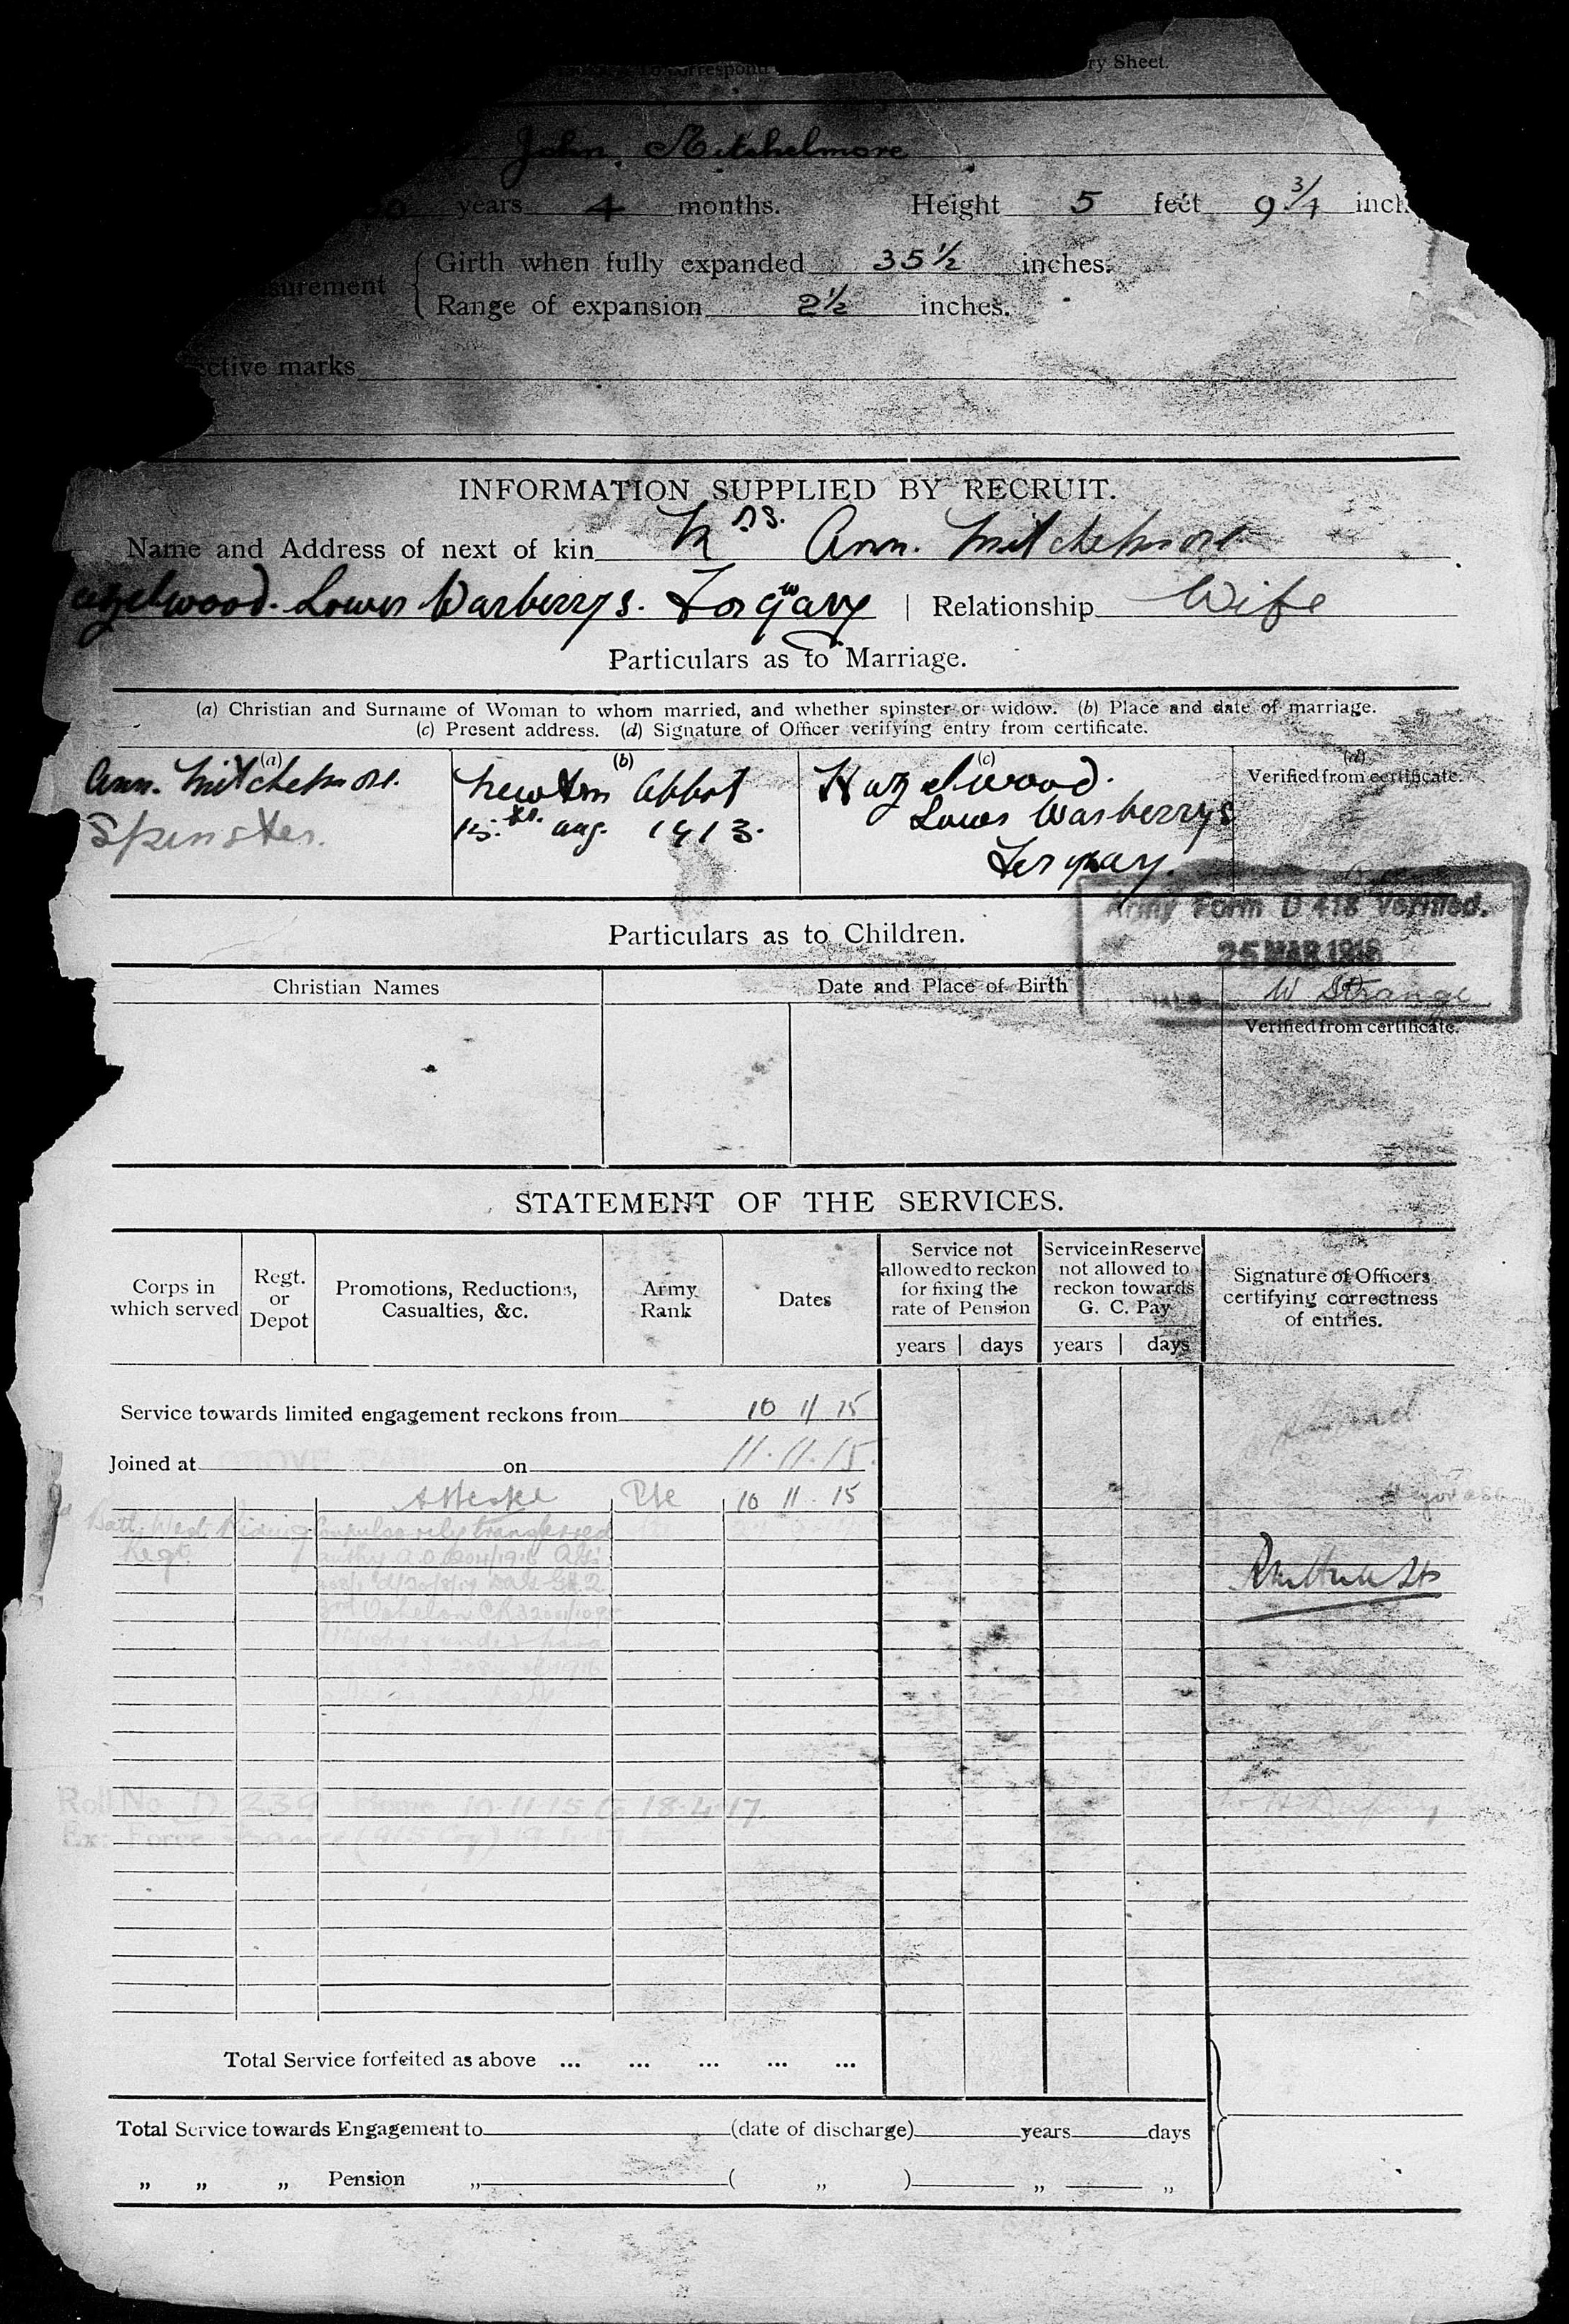 to correspond ry Sheet.
John Mitchelmore
years 4 months. Height 5 feet 9 3/4 inch
Girth when fully expanded 35 1/2 inches.
surement
Range of expansion 2 1/2 inches.
ctive marks
INFORMATION SUPPLIED BY RECRUIT.
Name and Address of next of kin Mrs. Ann. Mitchelmore
azelwood. Lower Warberrys. Torquay | Relationship Wife
Particulars as to Marriage.
(a) Christian and Surname of Woman to whom married, and whether spinster or widow. (b) Place and date of marriage.
(c) Present address. (d) Signature of Officer verifying entry from certificate.
(a) (b) (c) (d)
Ann. Mitchelmore. Newton Abbot Hazelwood. Verified from certificate.
Spinster. 15.th. Aug. 1913. Lower Warberrys
Torquay.
Army Form D 418 Verified.
Particulars as to Children.
25 MAR 1916
Christian Names Date and Place of Birth W Strange
Verified from certificate.
STATEMENT OF THE SERVICES.
Corps in which served Regt. or Depot Promotions, Reductions, Casualties, &c. Army Rank Dates Service not allowed to reckon for fixing the rate of Pension Service in Reserve not allowed to reckon towards G. C. Pay Signature of Officers certifying correctness of entries.
years | days years | days
Service towards limited engagement reckons from 10 11 15
Joined at GROVE PARK on 11.11.15.
Attested Pte 10 11 15
Batt. West Riding Compulsorily transferred
Regt.
Roll No. D 239 Home 10.11.15 to 18.4.17.
Ex: Force
Total Service forfeited as above ... ... ... ... ...
Total Service towards Engagement to (date of discharge) years days
„ „ „ Pension „ ( „ ) „ „